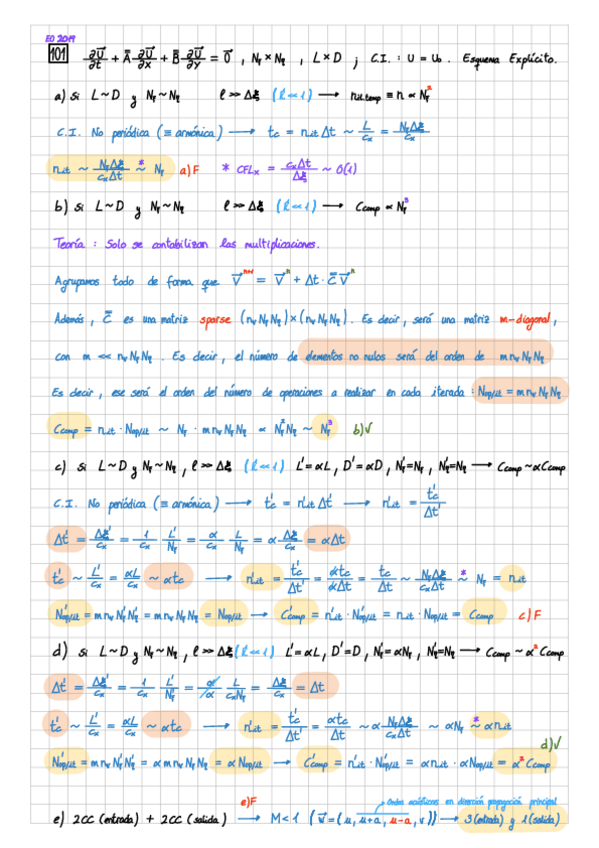 EO 2019
101 ∂U⃗/∂t + A̿ ∂U⃗/∂x + B̿ ∂U⃗/∂y = 0⃗ , Nξ × Nη , L × D ; C.I. : U = U₀ . Esquema Explícito.
a) Si L ~ D y Nξ ~ Nη ℓ >> Δξ (k << 1) → nit.temp ≡ n ∝ Nξ²
C.I. No periódica (≡ armónica) → tc = nit Δt ~ L/cx = NξΔξ/cx
nit ~ NξΔξ/cxΔt ~* Nξ a) F * CFLx = cxΔt/Δξ ~ O(1)
b) Si L ~ D y Nξ ~ Nη ℓ >> Δξ (k << 1) → Ccomp ∝ Nξ³
Teoría : Solo se contabilizan las multiplicaciones.
Agrupamos todo de forma que V⃗ⁿ⁺¹ = V⃗ⁿ + Δt · C̿ V⃗ⁿ
Además, C̿ es una matriz sparse (nv Nξ Nη) × (nv Nξ Nη). Es decir, será una matriz m-diagonal,
con m << nv Nξ Nη . Es decir, el número de elementos no nulos será del orden de m nv Nξ Nη
Es decir, ese será el orden del número de operaciones a realizar en cada iterada : Nop/it = m nv Nξ Nη
Ccomp = nit · Nop/it ~ Nξ · m nv Nξ Nη ∝ Nξ² Nη ~ Nξ³ b) √
c) Si L ~ D y Nξ ~ Nη , ℓ >> Δξ (k << 1) L' = αL , D' = αD , N'ξ = Nξ , N'η = Nη → Ccomp ~ α Ccomp
C.I. No periódica (≡ armónica) → t'c = n'it Δt' → n'it = t'c/Δt'
Δt' = Δξ'/cx = 1/cx L'/N'ξ = α/cx L/Nξ = α Δξ/cx = αΔt
t'c ~ L'/cx = αL/cx ~ αtc → n'it = t'c/Δt' = αtc/αΔt = tc/Δt ~ NξΔξ/cxΔt ~* Nξ = nit
N'op/it = m nv N'ξ N'η = m nv Nξ Nη = Nop/it → C'comp = n'it · N'op/it = nit · Nop/it = Ccomp c) F
d) Si L ~ D y Nξ ~ Nη , ℓ >> Δξ (k << 1) L' = αL , D' = D , N'ξ = αNξ , N'η = Nη → Ccomp ~ α² Ccomp
Δt' = Δξ'/cx = 1/cx L'/N'ξ = α/α L/cxNξ = Δξ/cx = Δt
t'c ~ L'/cx = αL/cx ~ αtc → n'it = t'c/Δt' = αtc/Δt ~ α NξΔξ/cxΔt ~ αNξ ~* αnit
d) √
N'op/it = m nv N'ξ N'η = α m nv Nξ Nη = α Nop/it → C'comp = n'it · N'op/it = αnit · αNop/it = α² Ccomp
Ondas acústicas en dirección propagación principal
e) F
e) 2CC (entrada) + 2CC (salida) → M < 1 (w⃗ = (u, u+a, u-a, v)) → 3 (entrada) y 1 (salida)